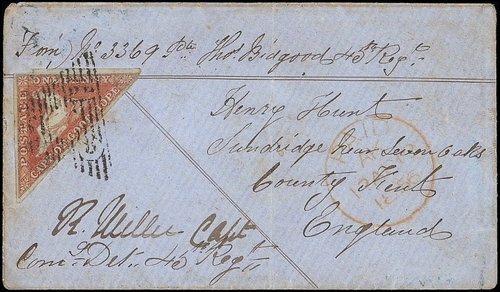 From, No 3369 Pte Thos Bidgood 45th Regt
POSTAGE
ONE PENNY
CAPE OF GOOD HOPE
Henry Hunt
Sundridge near Seven Oaks
County Kent
England
PAID
R. Miller Capt
Comg Det. 45th Regt